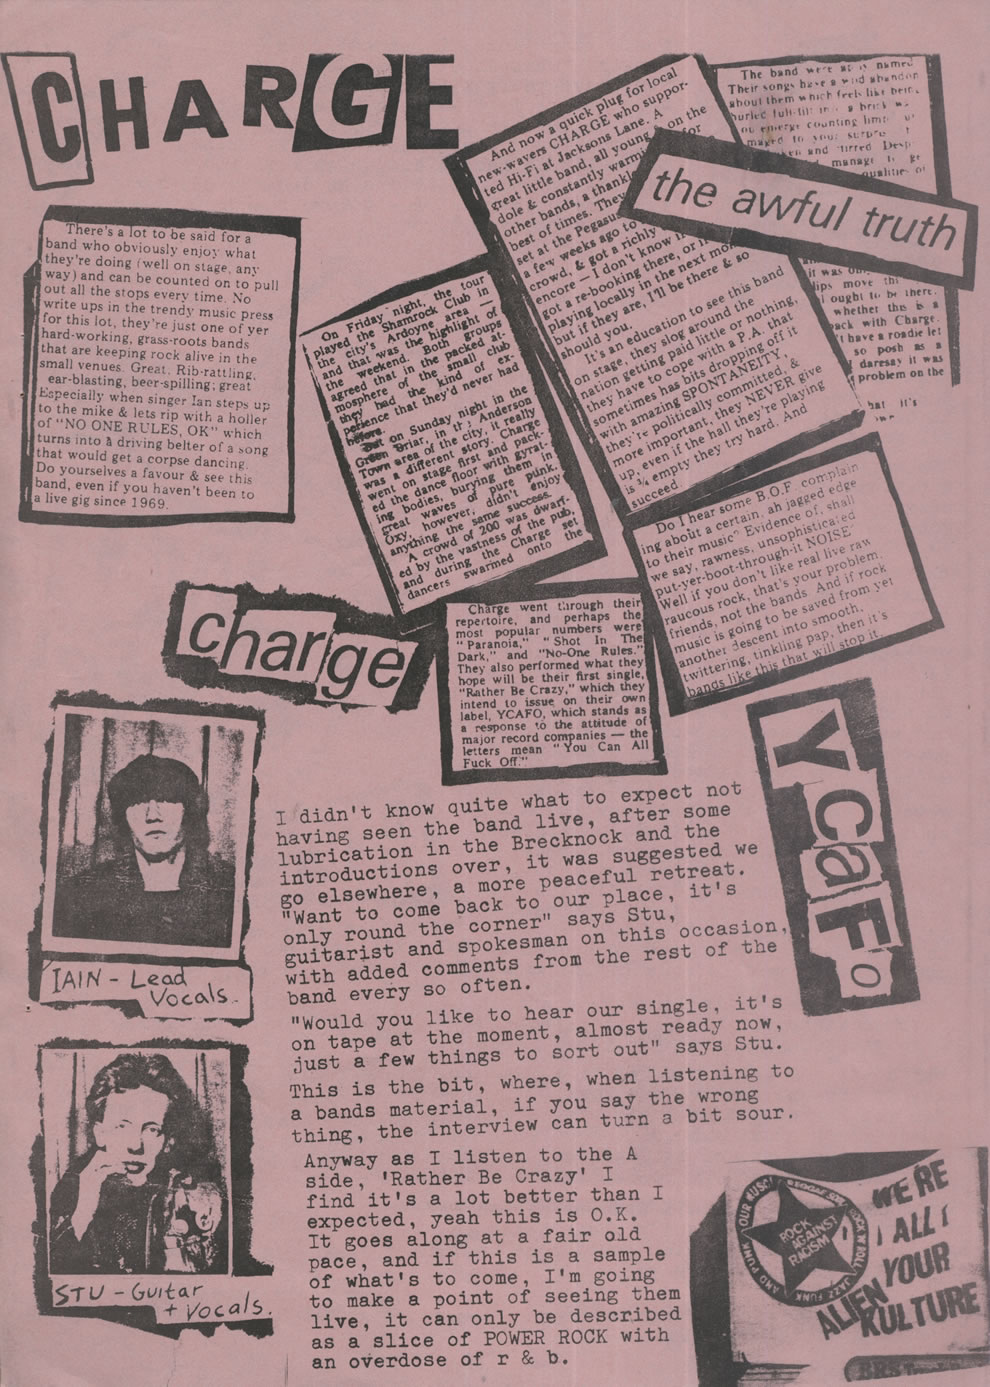 CHARGE
There's a lot to be said for a
band who obviously enjoy what
they're doing (well on stage, any
way) and can be counted on to pull
out all the stops every time. No
write ups in the trendy music press
for this lot, they're just one of yer
hard-working, grass-roots bands
that are keeping rock alive in the
small venues. Great. Rib-rattling,
ear-blasting, beer-spilling; great
Especially when singer Ian steps up
to the mike & lets rip with a holler
of "NO ONE RULES, OK" which
turns into a driving belter of a song
that would get a corpse dancing.
Do yourselves a favour & see this
band, even if you haven't been to
a live gig since 1969.
On Friday night, the tour
played the Shamrock Club in
the city's Ardoyne area —
and that was the highlight of
the weekend. Both groups
agreed that in the packed at-
mosphere of the small club
they had the kind of ex-
perience that they'd never had
before.
But on Sunday night in the
Green Briar, in the Anderson
Town area of the city, it really
was a different story. Charge
went on stage first and pack-
ed the dance floor with gyrat-
ing bodies, burying them in
great waves of pure punk.
Oxy, however, didn't enjoy
anything the same success.
A crowd of 200 was dwarf-
ed by the vastness of the pub,
and during the Charge set
dancers swarmed onto the
And now a quick plug for local
new-wavers CHARGE who suppor-
ted Hi-Fi at Jacksons Lane. A
great little band, all young on the
dole & constantly warming for
other bands, a thankl
best of times. They
set at the Pegasus
a few weeks ago to
crowd, & got a richly
encore — I don't know if
got a re-booking there, or if
playing locally in the next mon
but if they are, I'll be there & so
should you.
It's an education to see this band
on stage, they slog around the
nation getting paid little or nothing,
they have to cope with a P.A. that
sometimes has bits dropping off it
with amazing SPONTANEITY,
they're politically committed, &
more important, they NEVER give
up, even if the hall they're playing
is ¾ empty they try hard. And
succeed.
The band were named
Their songs have a wild abandon
about them which feels like being
hurled full-tilt a brick
counting
to your
and stirred
manage
qualities of
the awful truth
it was
lips move
I ought to be there.
whether this is a
back with Charge.
I have a roadie let
so posh as a
daresay it was
problem on the
that it's
Do I hear some B.O.F. complain
ing about a certain, ah jagged edge
to their music" Evidence of, shall
we say, rawness, unsophisticated
put-yer-boot-through-it NOISE
Well if you don't like real live raw
raucous rock, that's your problem,
friends, not the bands. And if rock
music is going to be saved from yet
another descent into smooth,
twittering, tinkling pap, then it's
bands like this that will stop it.
charge
Charge went through their
repertoire, and perhaps the
most popular numbers were
"Paranoia," "Shot In The
Dark," and "No-One Rules."
They also performed what they
hope will be their first single,
"Rather Be Crazy," which they
intend to issue on their own
label, YCAFO, which stands as
a response to the attitude of
major record companies — the
letters mean "You Can All
Fuck Off."
YCaFo
IAIN - Lead
Vocals.
STU - Guitar
+ Vocals.
I didn't know quite what to expect not
having seen the band live, after some
lubrication in the Brecknock and the
introductions over, it was suggested we
go elsewhere, a more peaceful retreat.
"Want to come back to our place, it's
only round the corner" says Stu,
guitarist and spokesman on this occasion,
with added comments from the rest of the
band every so often.
"Would you like to hear our single, it's
on tape at the moment, almost ready now,
just a few things to sort out" says Stu.
This is the bit, where, when listening to
a bands material, if you say the wrong
thing, the interview can turn a bit sour.
Anyway as I listen to the A
side, 'Rather Be Crazy' I
find it's a lot better than I
expected, yeah this is O.K.
It goes along at a fair old
pace, and if this is a sample
of what's to come, I'm going
to make a point of seeing them
live, it can only be described
as a slice of POWER ROCK with
an overdose of r & b.
OUR MUSIC REGGAE SOUL ROCK N ROLL JAZZ FUNK AND PUNK
ROCK
AGAINST
RACISM
WE'RE
ALL
YOUR
ALIEN
KULTURE